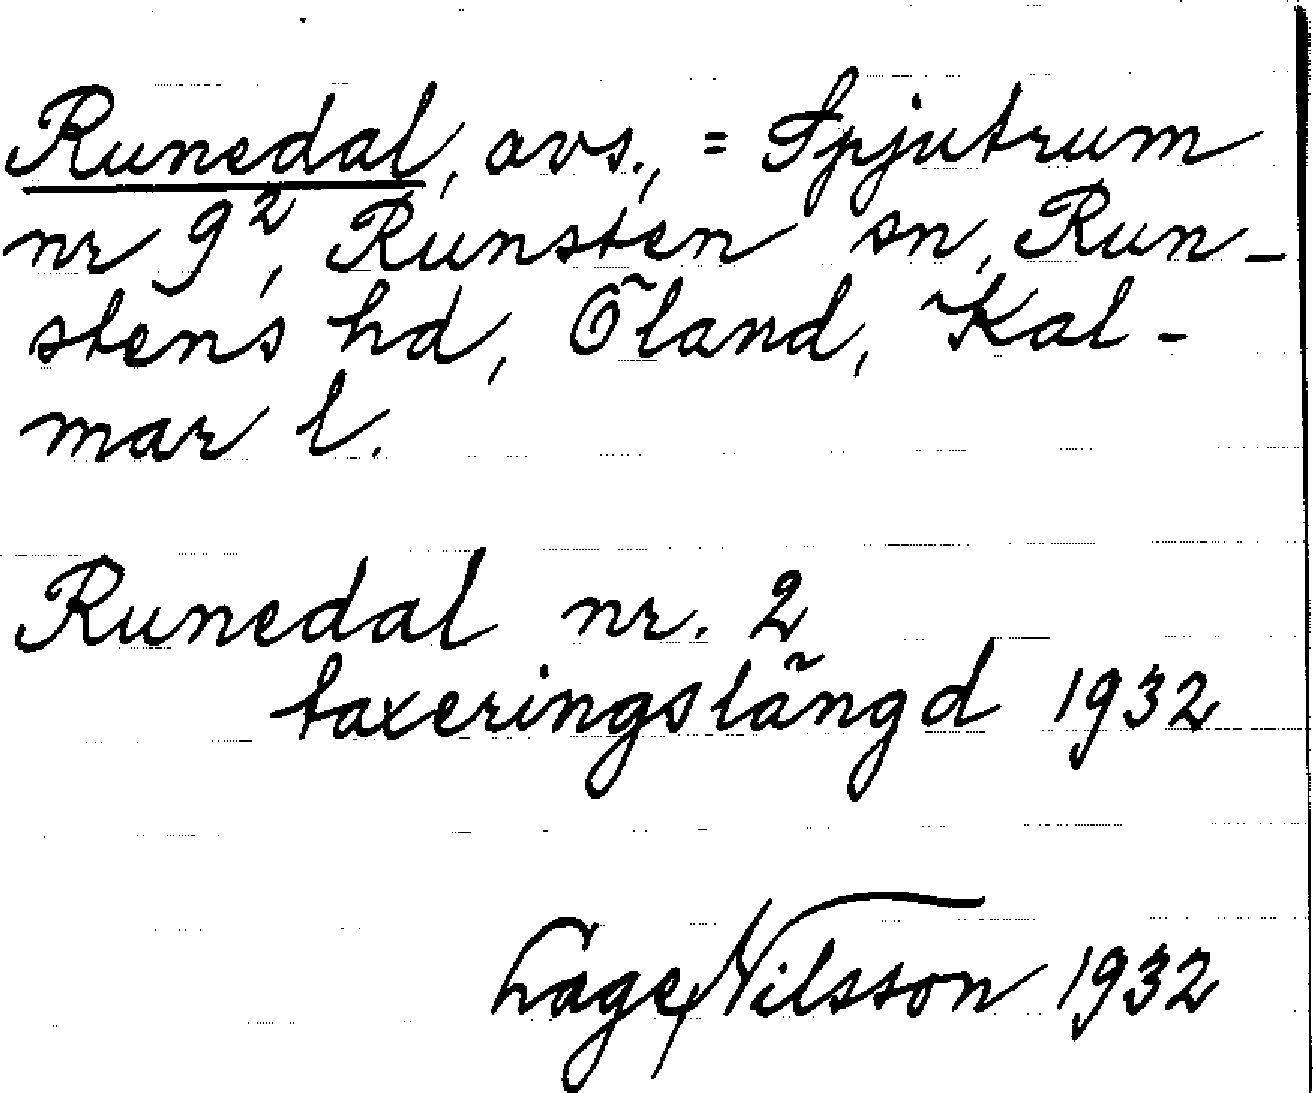 Runedal, avs., = Spjutrum
nr 9², Runsten sn, Run-
stens hd, Öland, Kal-
mar l.
Runedal nr. 2
taxeringslängd 1932
Lage Nilsson 1932